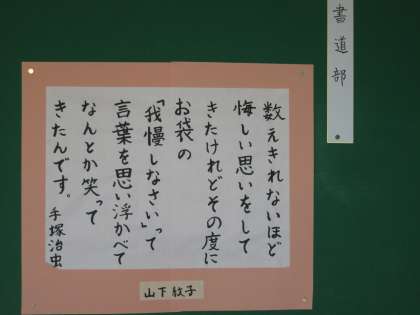 書道部
数えきれないほど
悔しい思いをして
きたけれどその度に
お袋の
「我慢しなさい」って
言葉を思い浮かべて
なんとか笑って
きたんです。
手塚治虫
山下紋子